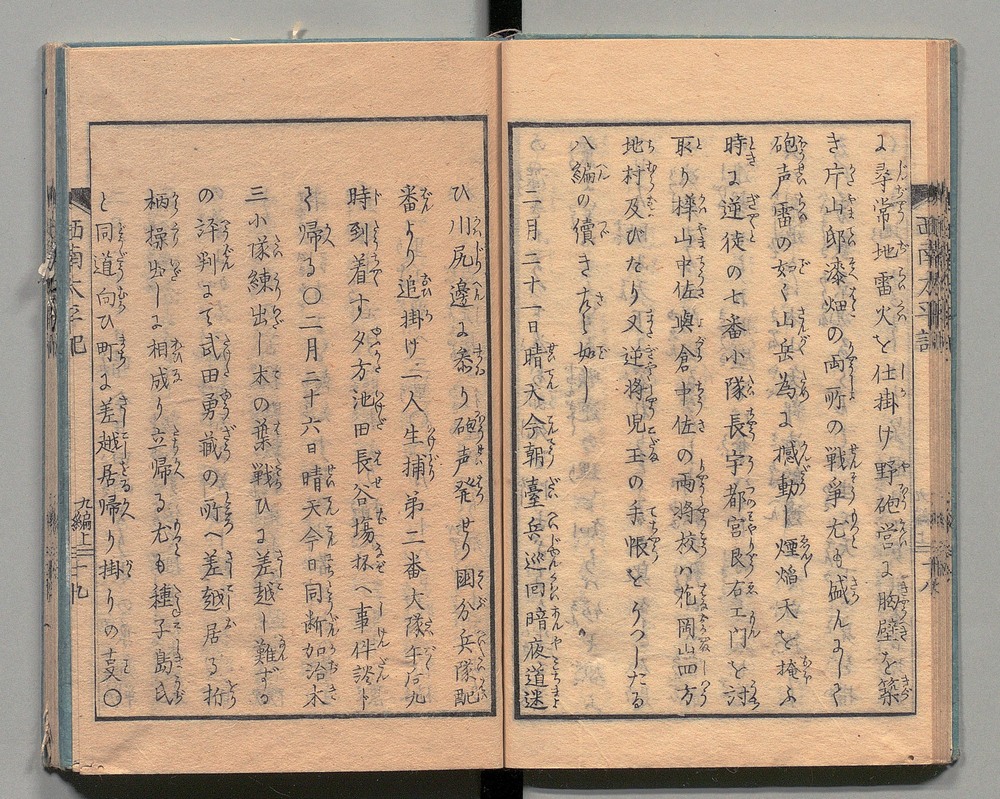 に尋常地雷火を仕掛け野砲営に胸壁を築
き片山邸漆畑の両所の戦争尤も盛んにして
砲声雷の如く山岳為に撼動し煙焔天を掩ふ
時に逆徒の七番小隊長宇都宮良右エ門を討
取り樺山中佐與倉中佐の両将校ハ花岡山四方
地村及びたり又逆将児玉の手帳をうつしたる
八編の續き左之如し
二月二十一日晴天今朝臺兵巡回暗夜道迷
ひ川尻邊に参り砲声発せり国分兵隊配
番より追掛け一人生捕第二番大隊午后九
時到着す夕方池田長谷場抔へ事件談ト
く帰る〇二月二十六日晴天今日同断加治木
三小隊練出し木の葉戦ひに差越し難ずる
の評判にて武田勇蔵の所へ差越居る折
柄操出しに相成り立帰る尤も種子島氏
と同道向ひ町に差越居帰り掛りの㕝〇
西南太平記
九編上
十九
西南太平記